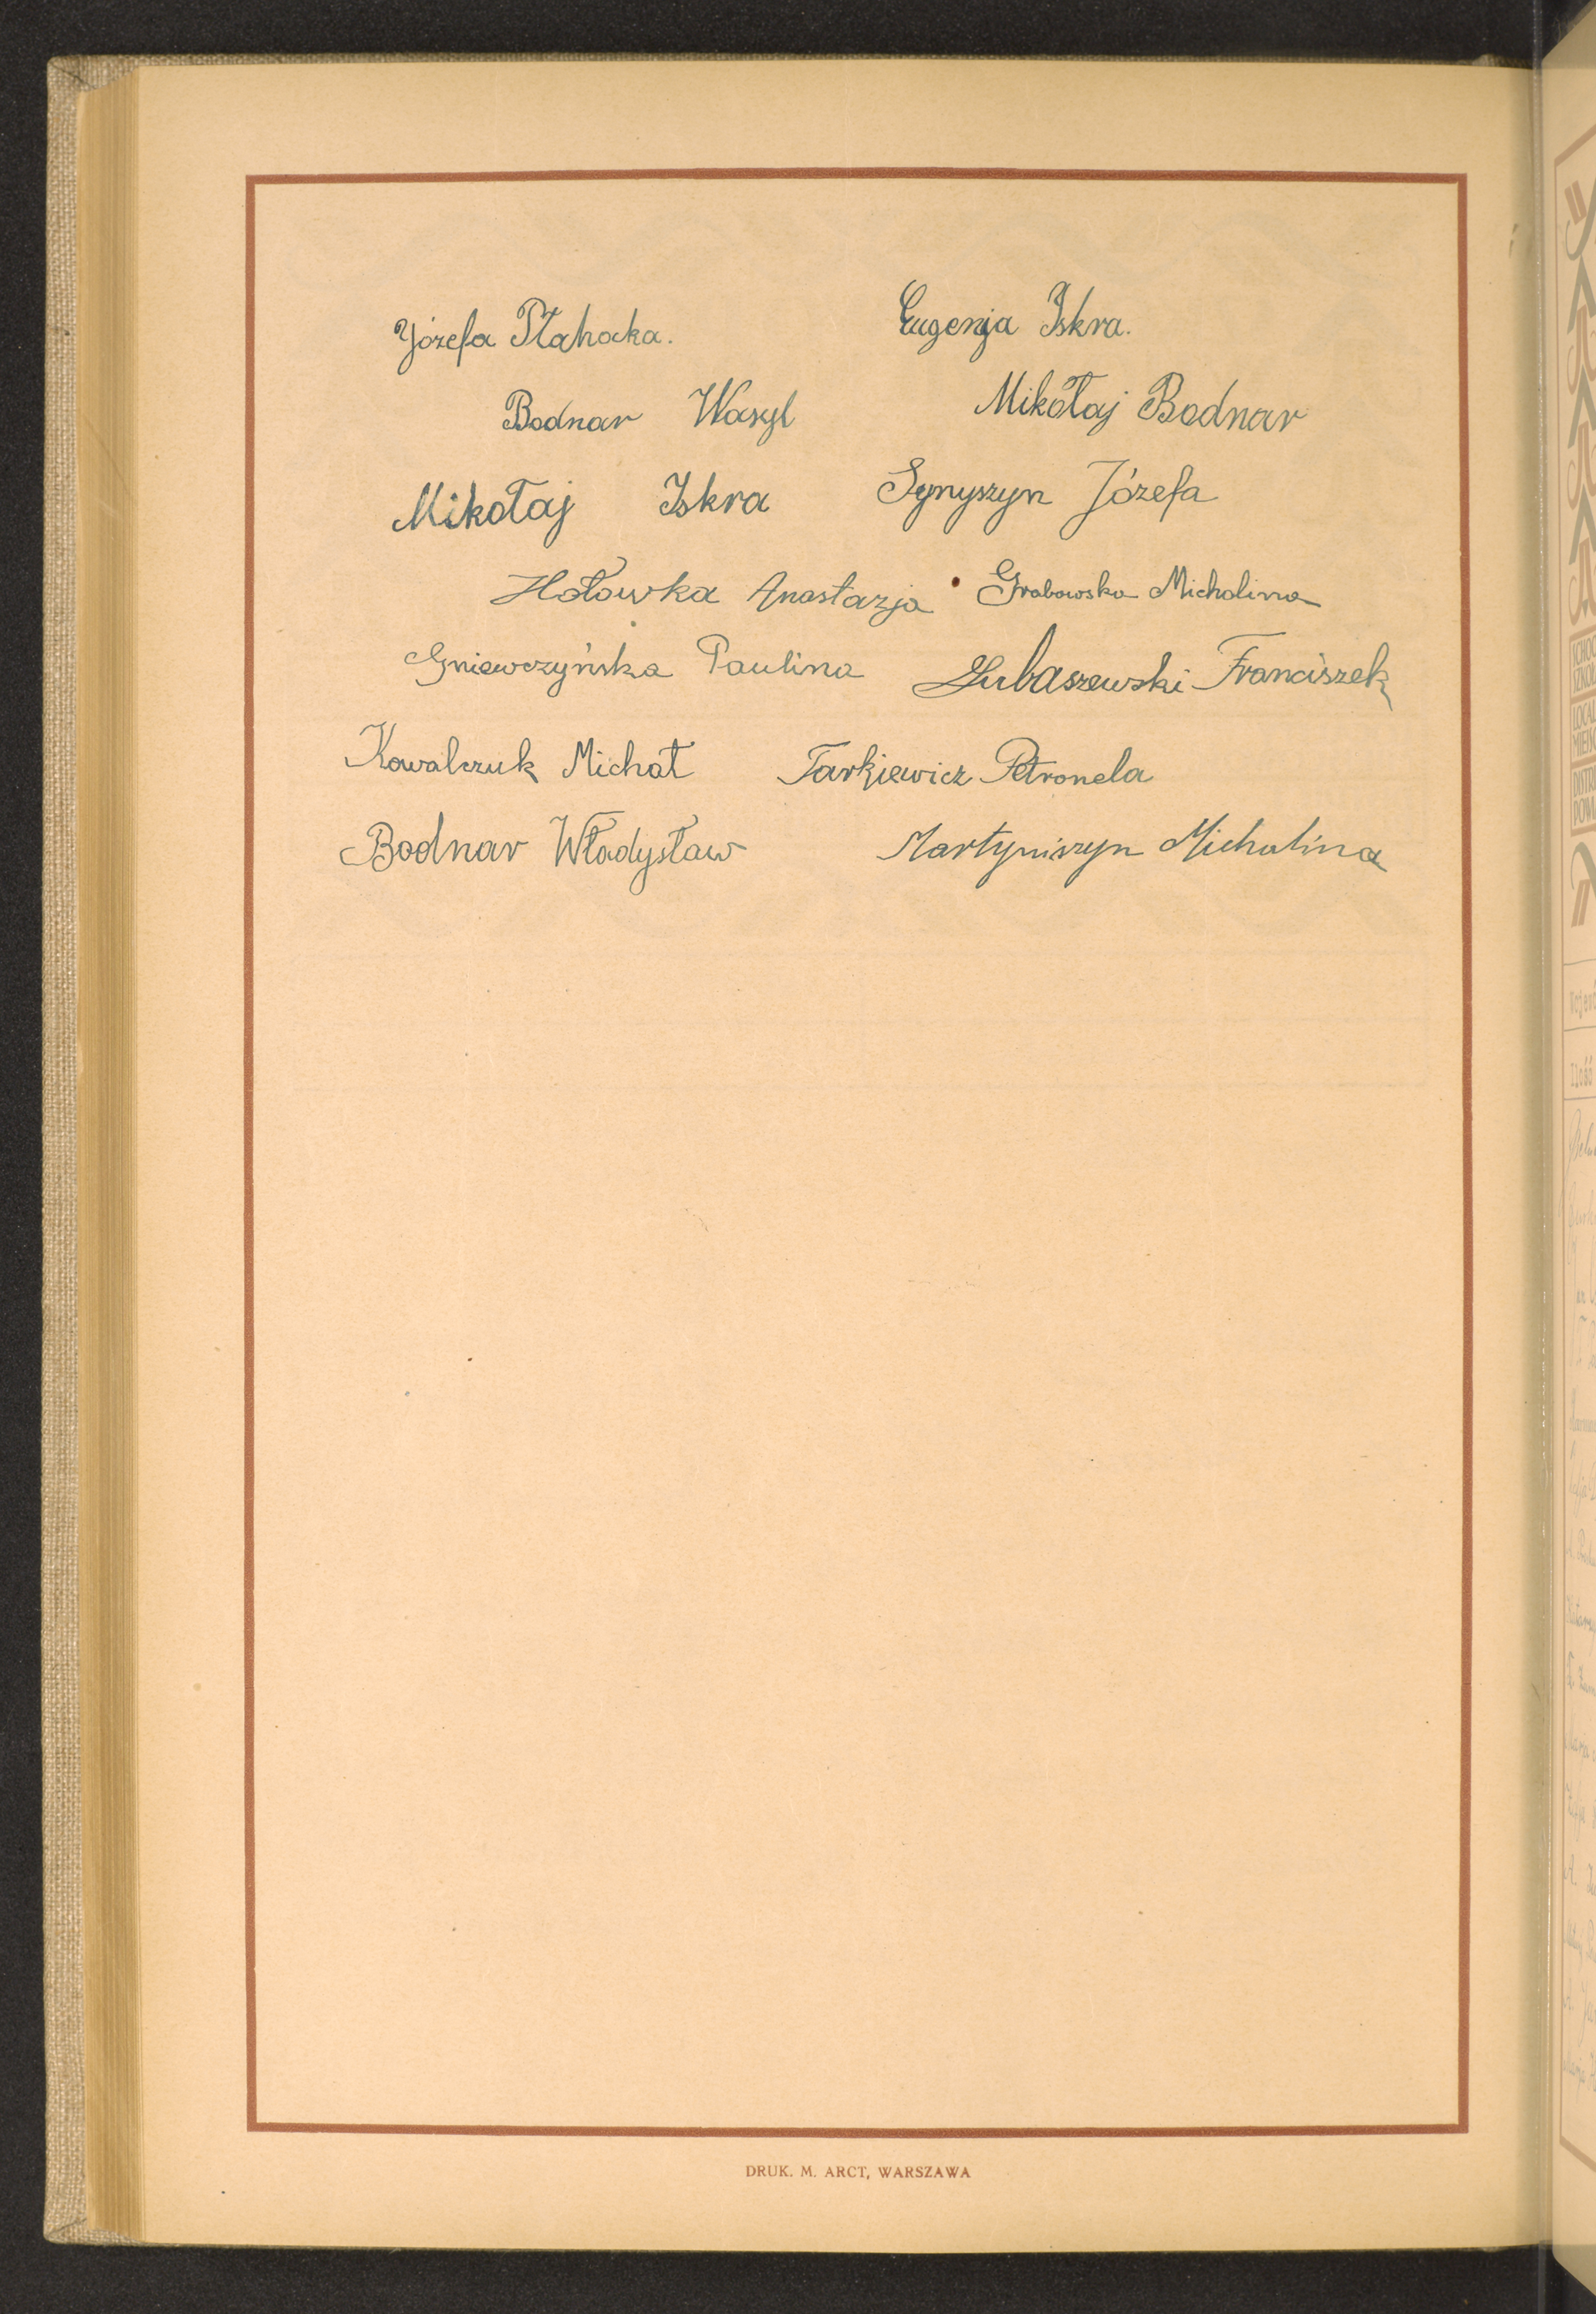 Józefa Płahocka. Eugenja Iskra.
Bodnar Wasyl Mikołaj Bodnar
Mikołaj Iskra Synyszyn Józefa
Hołowka Anastazja Grabowska Michalina
Gniewczyńska Paulina Lubaszewski Franciszek
Kowalczuk Michał Tarkiewicz Petronela
Bodnar Władysław Martyniszyn Michalina
DRUK. M. ARCT, WARSZAWA